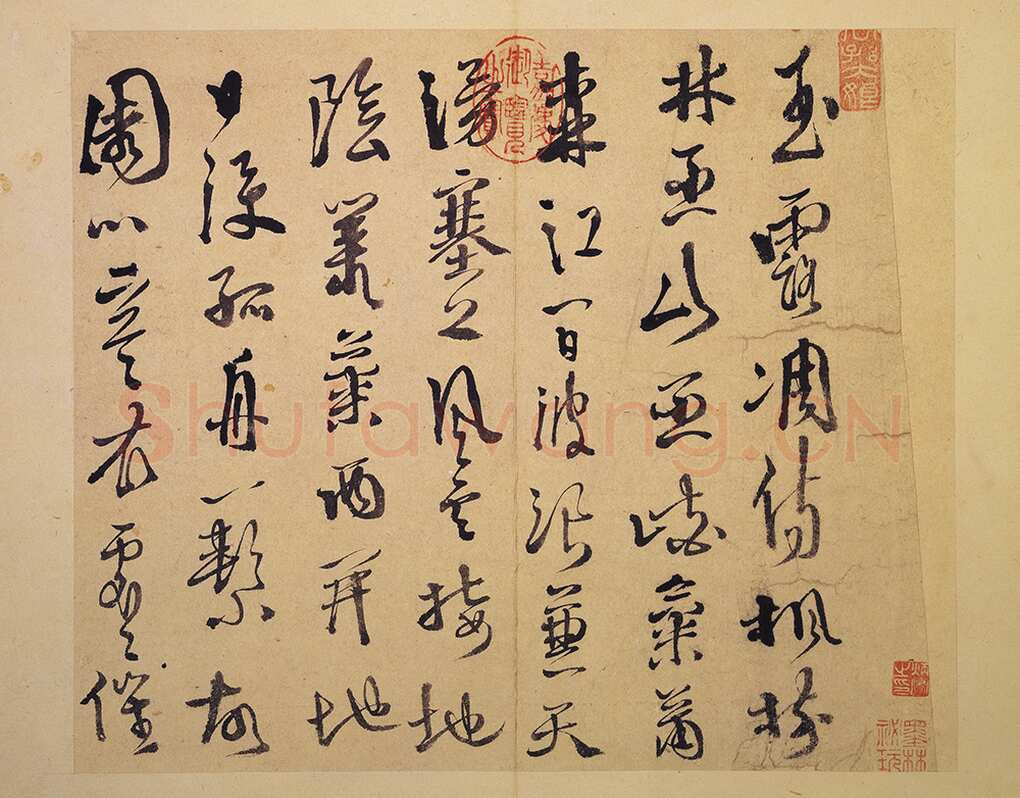 玉露凋傷楓樹
林巫山巫峽氣蕭
森江間波浪兼天
湧塞上風雲接地
陰叢菊兩開他
日淚孤舟一繫故
園心寒衣處處催
嘉慶御覽之寶
墨林祕玩
Shufawang.CN